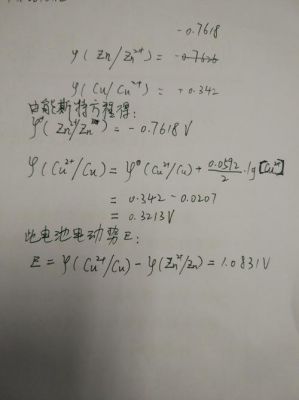 -0.7618
φ(Zn/Zn²⁺) = -0.7626
φ(Cu/Cu²⁺) = +0.342
由能斯特方程得:
φ(Zn²⁺/Zn) = -0.7618V
φ(Cu²⁺/Cu) = φ⁰(Cu²⁺/Cu) + 0.0592/2 · lg[Cu²⁺]
= 0.342 - 0.0207
= 0.3213V
此电池电动势E:
E = φ(Cu²⁺/Cu) - φ(Zn²⁺/Zn) = 1.0831V